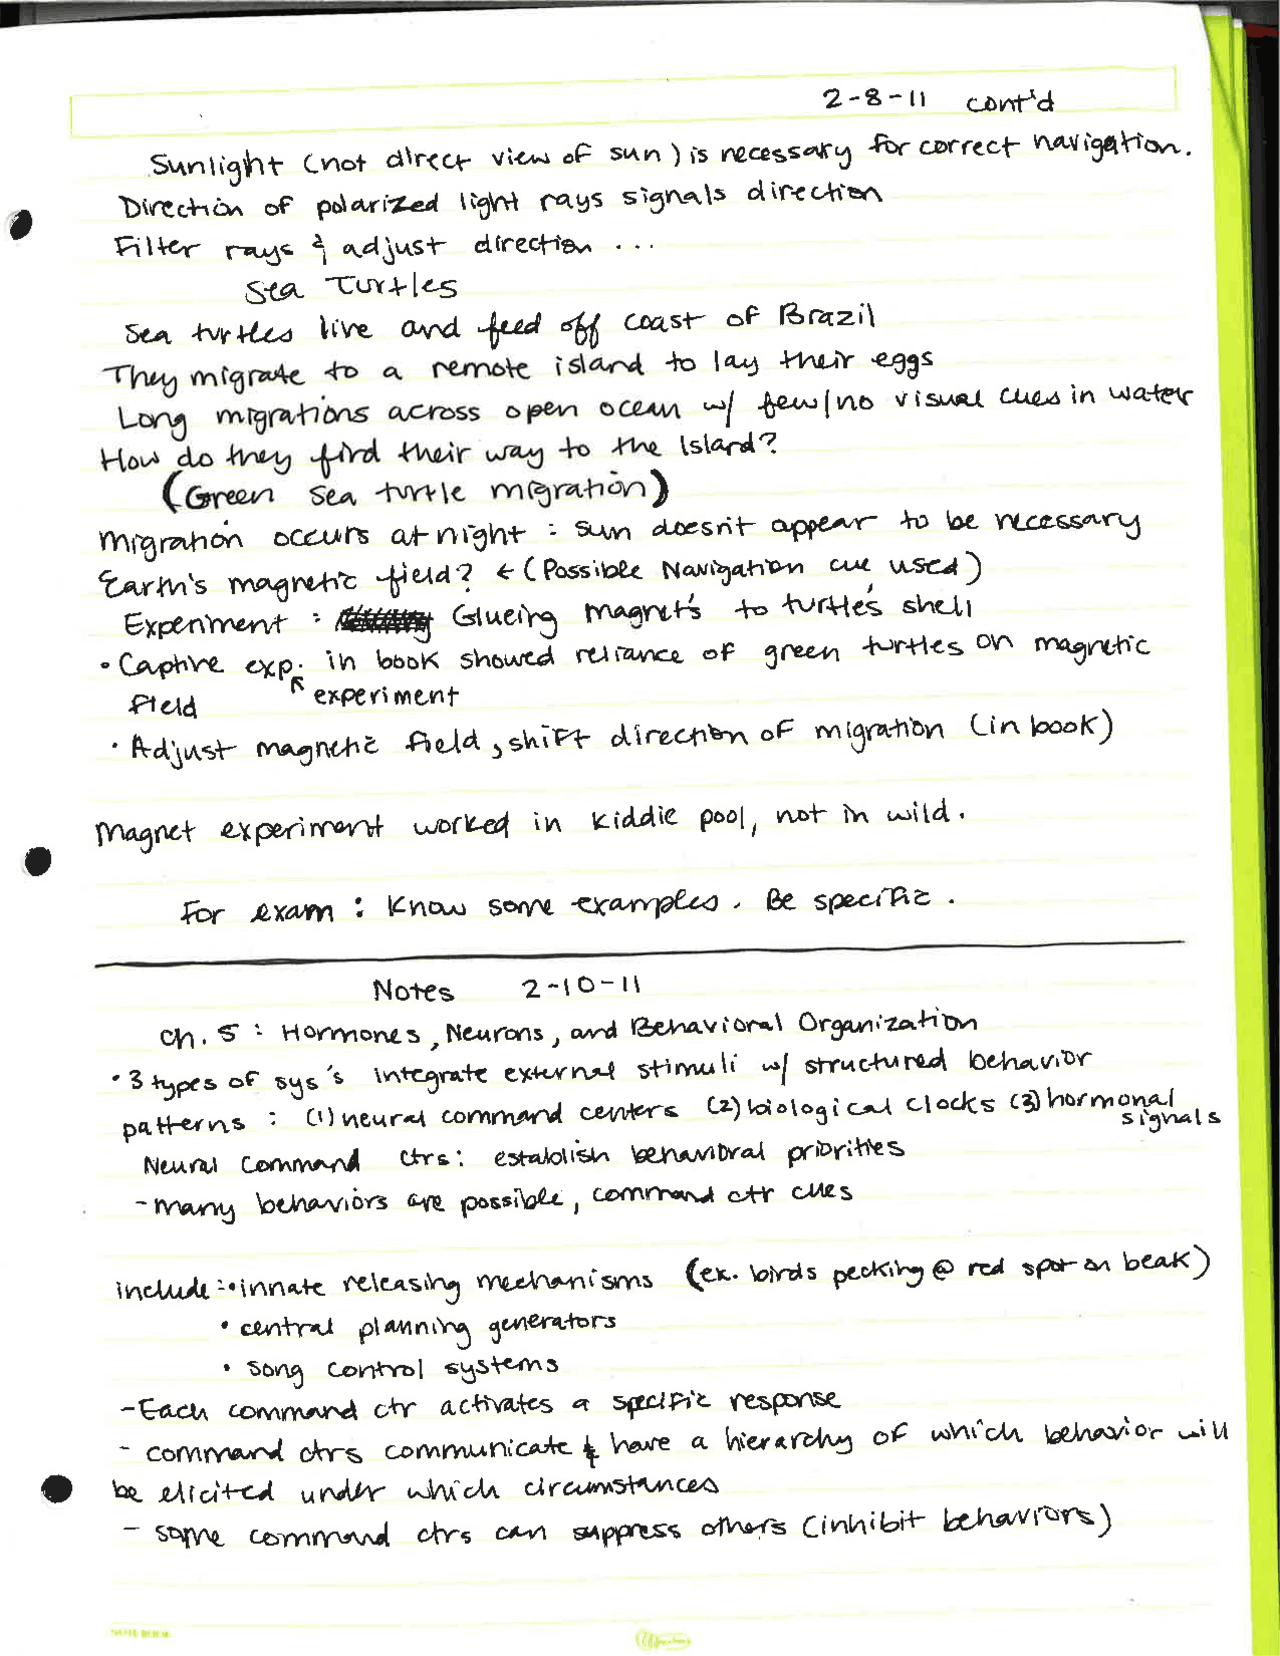 2-8-11 cont'd
Sunlight (not direct view of sun) is necessary for correct navigation.
Direction of polarized light rays signals direction
Filter rays & adjust direction ...
Sea Turtles
Sea turtles live and feed off coast of Brazil
They migrate to a remote island to lay their eggs
Long migrations across open ocean w/ few/no visual cues in water
How do they find their way to the Island?
(Green sea turtle migration)
Migration occurs at night : sun doesn't appear to be necessary
Earth's magnetic field? ← (Possible Navigation cue used)
Experiment : Glueing magnet's to turtle's shell
• Captive exp. in book showed reliance of green turtles on magnetic
field experiment
• Adjust magnetic field, shift direction of migration (in book)
Magnet experiment worked in kiddie pool, not in wild.
For exam : Know some examples. Be specific.
Notes 2-10-11
Ch. 5 : Hormones, Neurons, and Behavioral Organization
• 3 types of sys's integrate external stimuli w/ structured behavior
patterns : (1) neural command centers (2) biological clocks (3) hormonal
signals
Neural Command Ctrs: establish behavioral priorities
- many behaviors are possible, command ctr cues
include :• innate releasing mechanisms (ex. birds pecking @ red spot on beak)
• central planning generators
• song control systems
- Each command ctr activates a specific response
- command ctrs communicate & have a hierarchy of which behavior will
be elicited under which circumstances
- some command ctrs can suppress others (inhibit behaviors)